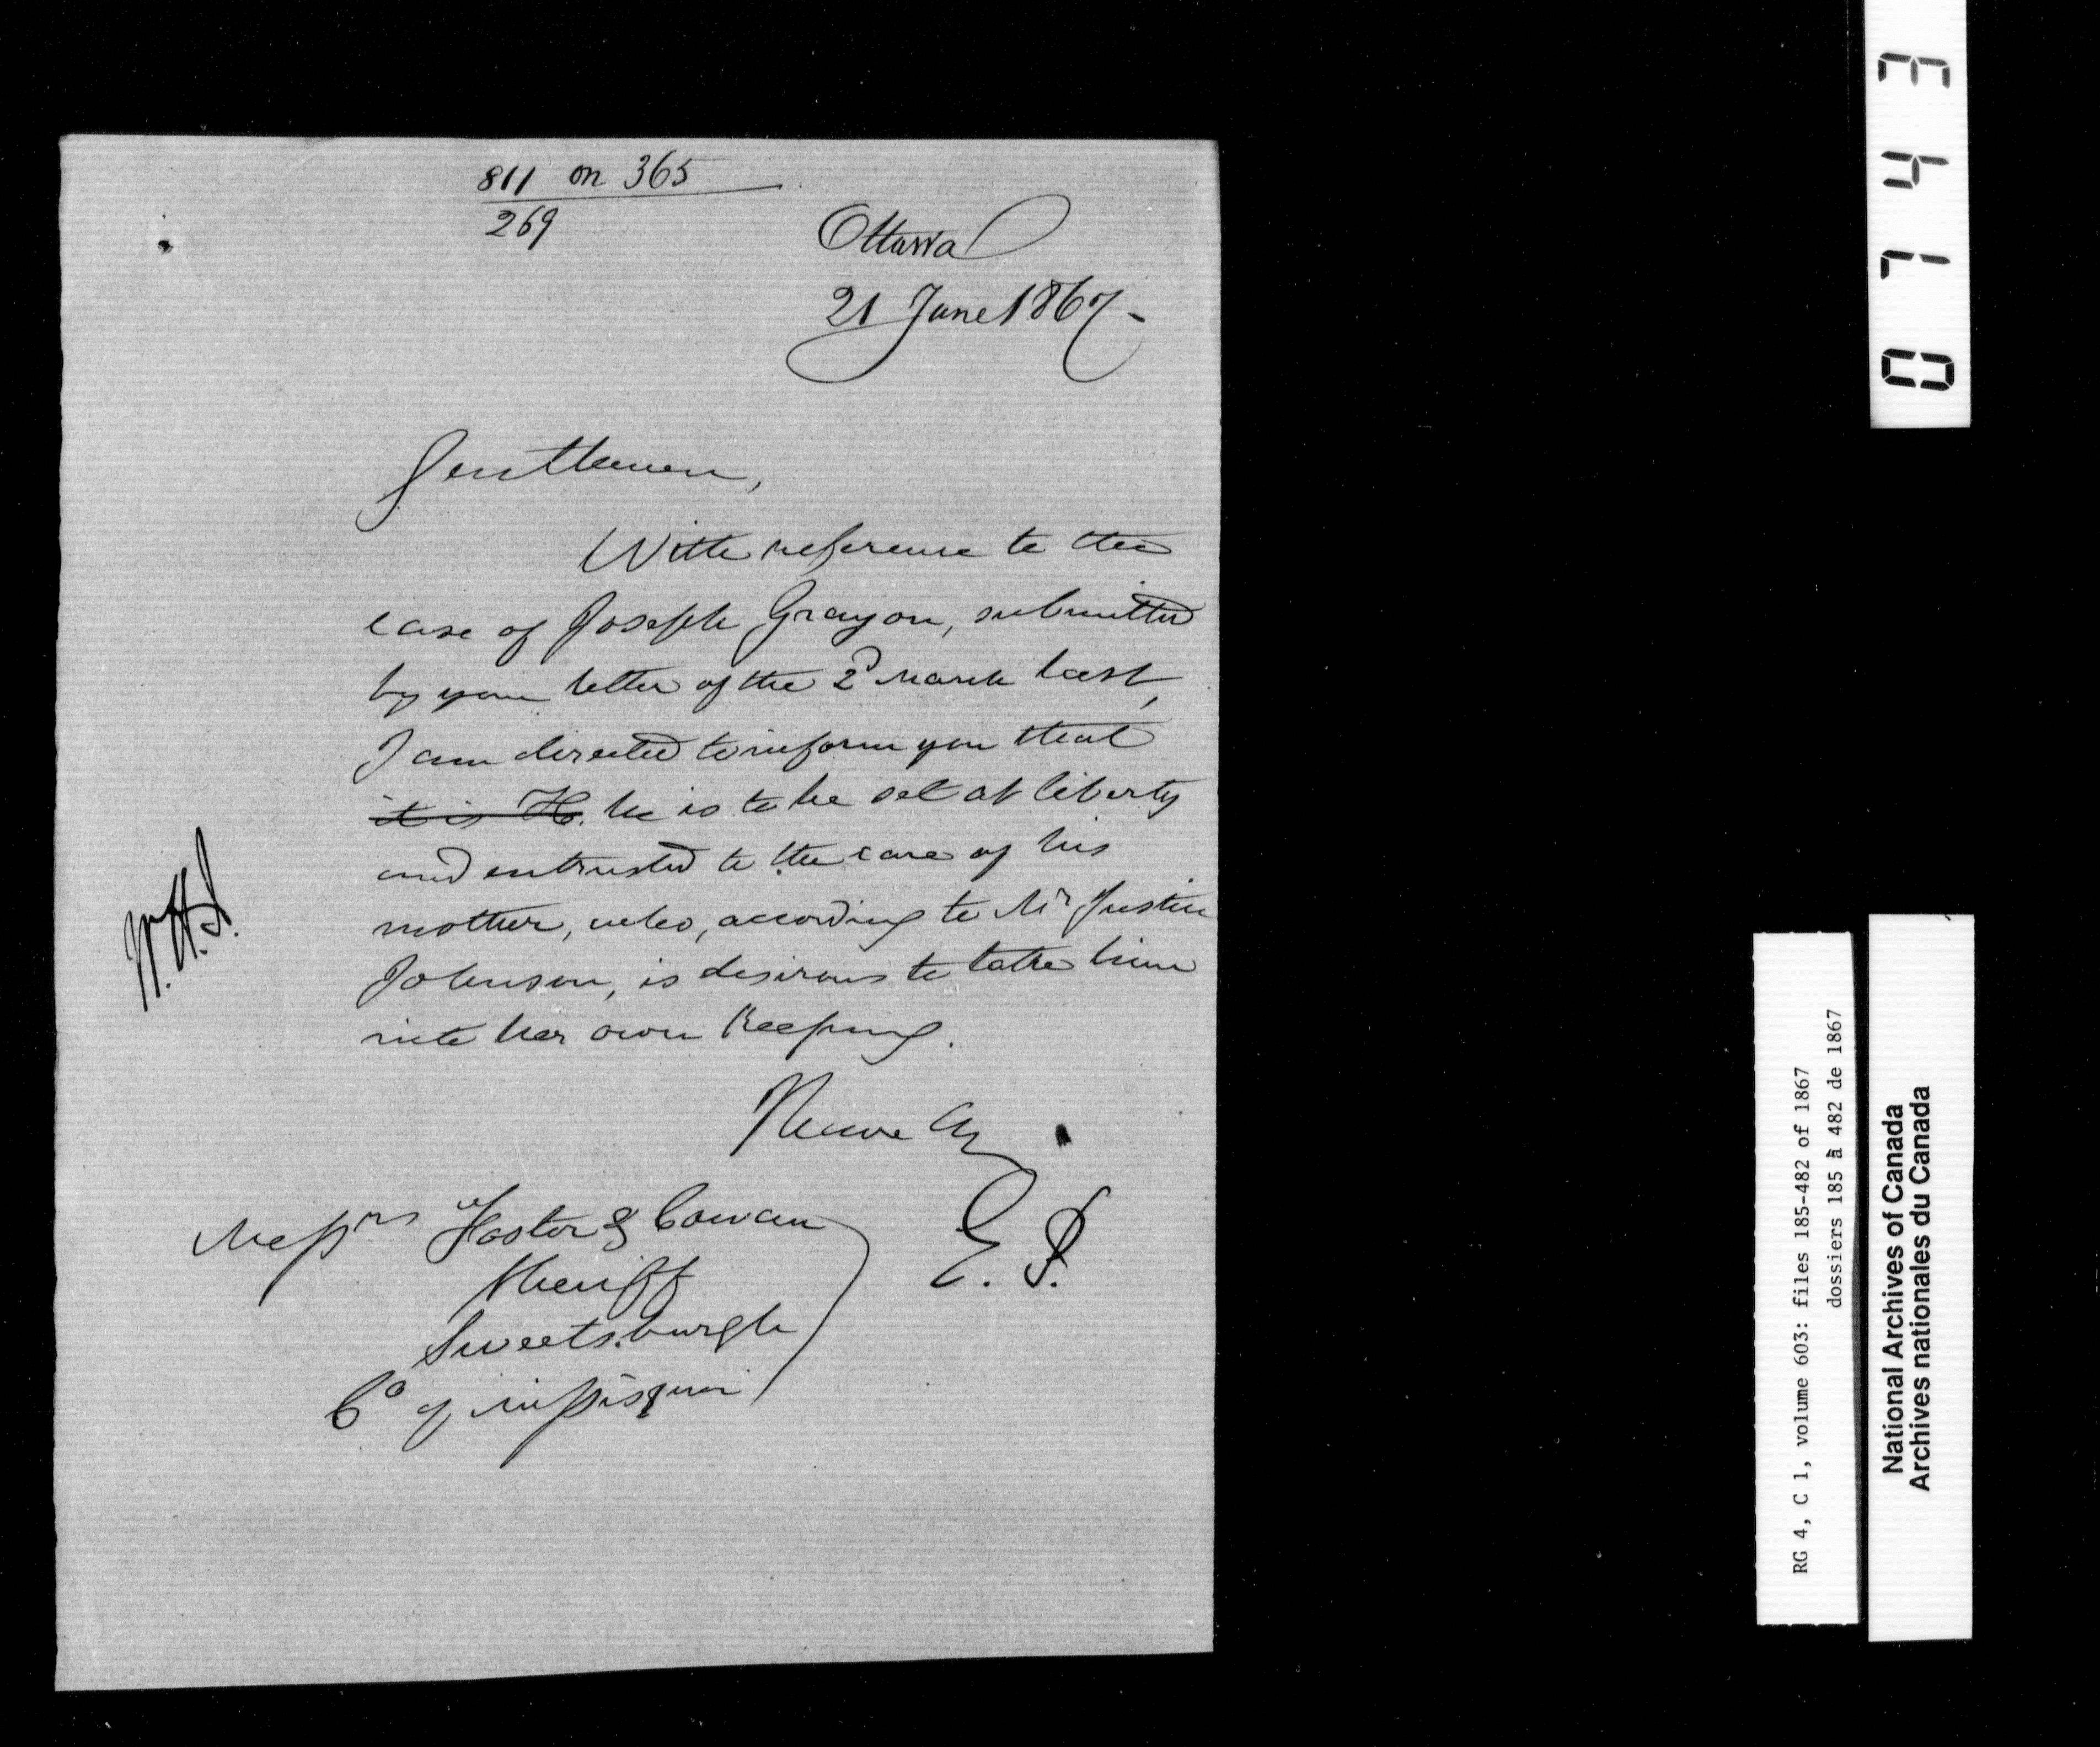 811 on 365
269
Ottawa
21 June 1867-
Gentlemen,
With reference to the
case of Joseph Grayon, submitted
by your letter of the 2d March last,
I am directed to inform you that
it is H. he is to be set at liberty
and entrusted to the care of his
mother, who, according to Mr Justice
Johnson, is desirous to take him
into her own Keeping.
W.H.J.
E. P.
Messrs Foster & Cowan
Sheriff
Sweetsburgh
Co of missisquoi
0743
RG 4, C 1, volume 603: files 185-482 of 1867
dossiers 185 à 482 de 1867
National Archives of Canada
Archives nationales du Canada